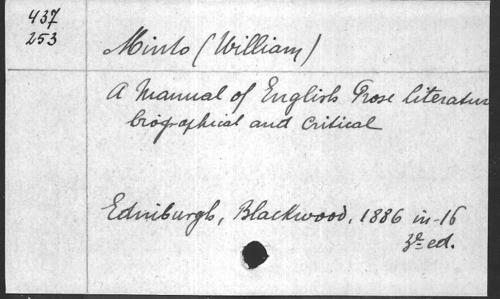 437
253
Minto (William)
A Manual of English Prose literatur
biographical and critical
Edinburgh, Blackwood, 1886 in-16
3e ed.